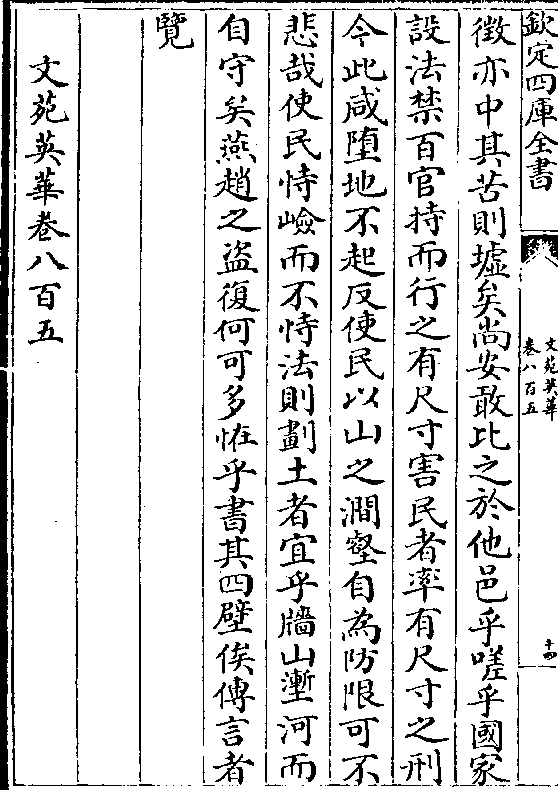 欽定四庫全書
文苑英華
卷八百五
十四
徴亦中其苦則墟矣尚安敢比之於他邑乎嗟乎國家
設法禁百官持而行之有尺寸害民者率有尺寸之刑
今此咸墮地不起反使民以山之澗壑自為防限可不
悲哉使民恃嶮而不恃法則劃土者宜乎牆山塹河而
自守矣燕趙之盜復何可多恠乎書其四壁俟傳言者
覽
文苑英華卷八百五